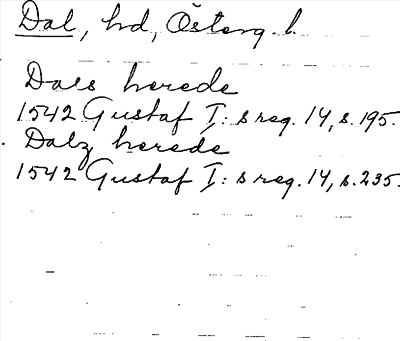 Dal, hd, Österg. l.
Dals herede
1542 Gustaf I: s reg. 14, s. 195.
Dalz herede
1542 Gustaf I: s reg. 14, s. 235.